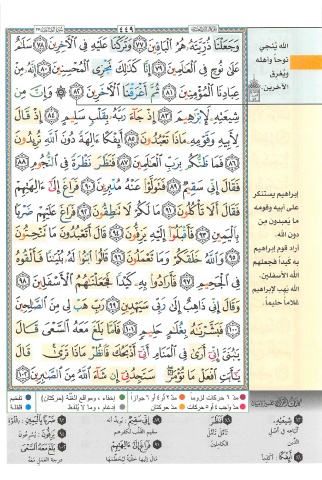 ٤٤٩
وَجَعَلْنَا ذُرِّيَّتَهُۥ هُمُ ٱلْبَاقِينَ ٧٧ وَتَرَكْنَا عَلَيْهِ فِى ٱلْءَاخِرِينَ ٧٨ سَلَٰمٌ
عَلَىٰ نُوحٍ فِى ٱلْعَٰلَمِينَ ٧٩ إِنَّا كَذَٰلِكَ نَجْزِى ٱلْمُحْسِنِينَ ٨٠ إِنَّهُۥ مِنْ
عِبَادِنَا ٱلْمُؤْمِنِينَ ٨١ ثُمَّ أَغْرَقْنَا ٱلْءَاخَرِينَ ٨٢ ۞ وَإِنَّ مِن
شِيعَتِهِۦ لَإِبْرَٰهِيمَ ٨٣ إِذْ جَآءَ رَبَّهُۥ بِقَلْبٍ سَلِيمٍ ٨٤ إِذْ قَالَ
لِأَبِيهِ وَقَوْمِهِۦ مَاذَا تَعْبُدُونَ ٨٥ أَئِفْكًا ءَالِهَةً دُونَ ٱللَّهِ تُرِيدُونَ
٨٦ فَمَا ظَنُّكُم بِرَبِّ ٱلْعَٰلَمِينَ ٨٧ فَنَظَرَ نَظْرَةً فِى ٱلنُّجُومِ ٨٨
فَقَالَ إِنِّى سَقِيمٌ ٨٩ فَتَوَلَّوْا۟ عَنْهُ مُدْبِرِينَ ٩٠ فَرَاغَ إِلَىٰٓ ءَالِهَتِهِمْ
فَقَالَ أَلَا تَأْكُلُونَ ٩١ مَا لَكُمْ لَا تَنطِقُونَ ٩٢ فَرَاغَ عَلَيْهِمْ ضَرْبًۢا
بِٱلْيَمِينِ ٩٣ فَأَقْبَلُوٓا۟ إِلَيْهِ يَزِفُّونَ ٩٤ قَالَ أَتَعْبُدُونَ مَا تَنْحِتُونَ
٩٥ وَٱللَّهُ خَلَقَكُمْ وَمَا تَعْمَلُونَ ٩٦ قَالُوا۟ ٱبْنُوا۟ لَهُۥ بُنْيَٰنًا فَأَلْقُوهُ
فِى ٱلْجَحِيمِ ٩٧ فَأَرَادُوا۟ بِهِۦ كَيْدًا فَجَعَلْنَٰهُمُ ٱلْأَسْفَلِينَ ٩٨
وَقَالَ إِنِّى ذَاهِبٌ إِلَىٰ رَبِّى سَيَهْدِينِ ٩٩ رَبِّ هَبْ لِى مِنَ ٱلصَّٰلِحِينَ
١٠٠ فَبَشَّرْنَٰهُ بِغُلَٰمٍ حَلِيمٍ ١٠١ فَلَمَّا بَلَغَ مَعَهُ ٱلسَّعْىَ قَالَ
يَٰبُنَىَّ إِنِّىٓ أَرَىٰ فِى ٱلْمَنَامِ أَنِّىٓ أَذْبَحُكَ فَٱنظُرْ مَاذَا تَرَىٰ ۚ قَالَ
يَٰٓأَبَتِ ٱفْعَلْ مَا تُؤْمَرُ ۖ سَتَجِدُنِىٓ إِن شَآءَ ٱللَّهُ مِنَ ٱلصَّٰبِرِينَ ١٠٢
الله يُنجي
نوحاً وأهله
ويُغرق
الآخرين
إبراهيم يستنكر
على أبيه وقومه
ما يعبدون من
دون الله
أراد قوم إبراهيم
به كيداً فجعلهم
الله الأسفلين.
الله يَهب لإبراهيم
غلاماً حليماً.
مدّ ٦ حركات لزوماً
مدّ ٢ أو ٤ أو ٦ جوازاً
إخفاء، ومواقع الغُنّة (حركتان)
تفخيم
مدّ واجب ٤ أو ٥ حركات
مدّ حركتان
إدغام، وما لا يُلفَظ
قلقلة